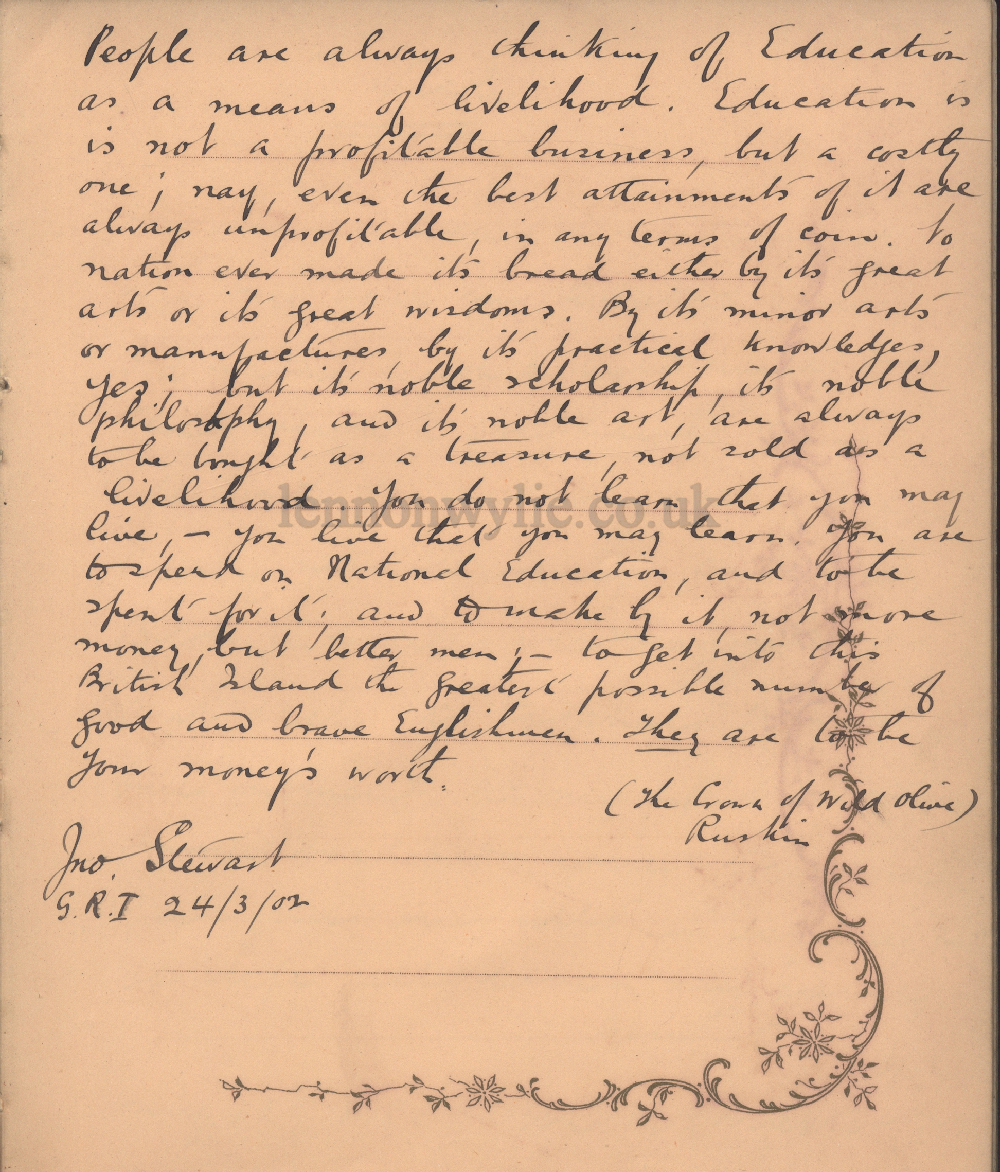 People are always thinking of Education
as a means of livelihood. Education is
is not a profitable business, but a costly
one; nay, even the best attainments of it are
always unprofitable, in any terms of coin. No
nation ever made its bread either by its great
arts or its great wisdoms. By its minor arts
or manufactures, by its practical knowledges,
yes; but its noble scholarship, its noble
philosophy, and its noble art, are always
to be bought as a treasure, not sold as a
livelihood. You do not learn that you may
live, — you live that you may learn. You are
to spend on National Education, and to be
spent for it; and to make by it, not more
money, but better men; — to get into this
British Island the greatest possible number of
good and brave Englishmen. They are to be
Your money's worth.
(The Crown of Wild Olive)
Ruskin
Jno. Stewart
G.R.I 24/3/02
lennonwylie.co.uk